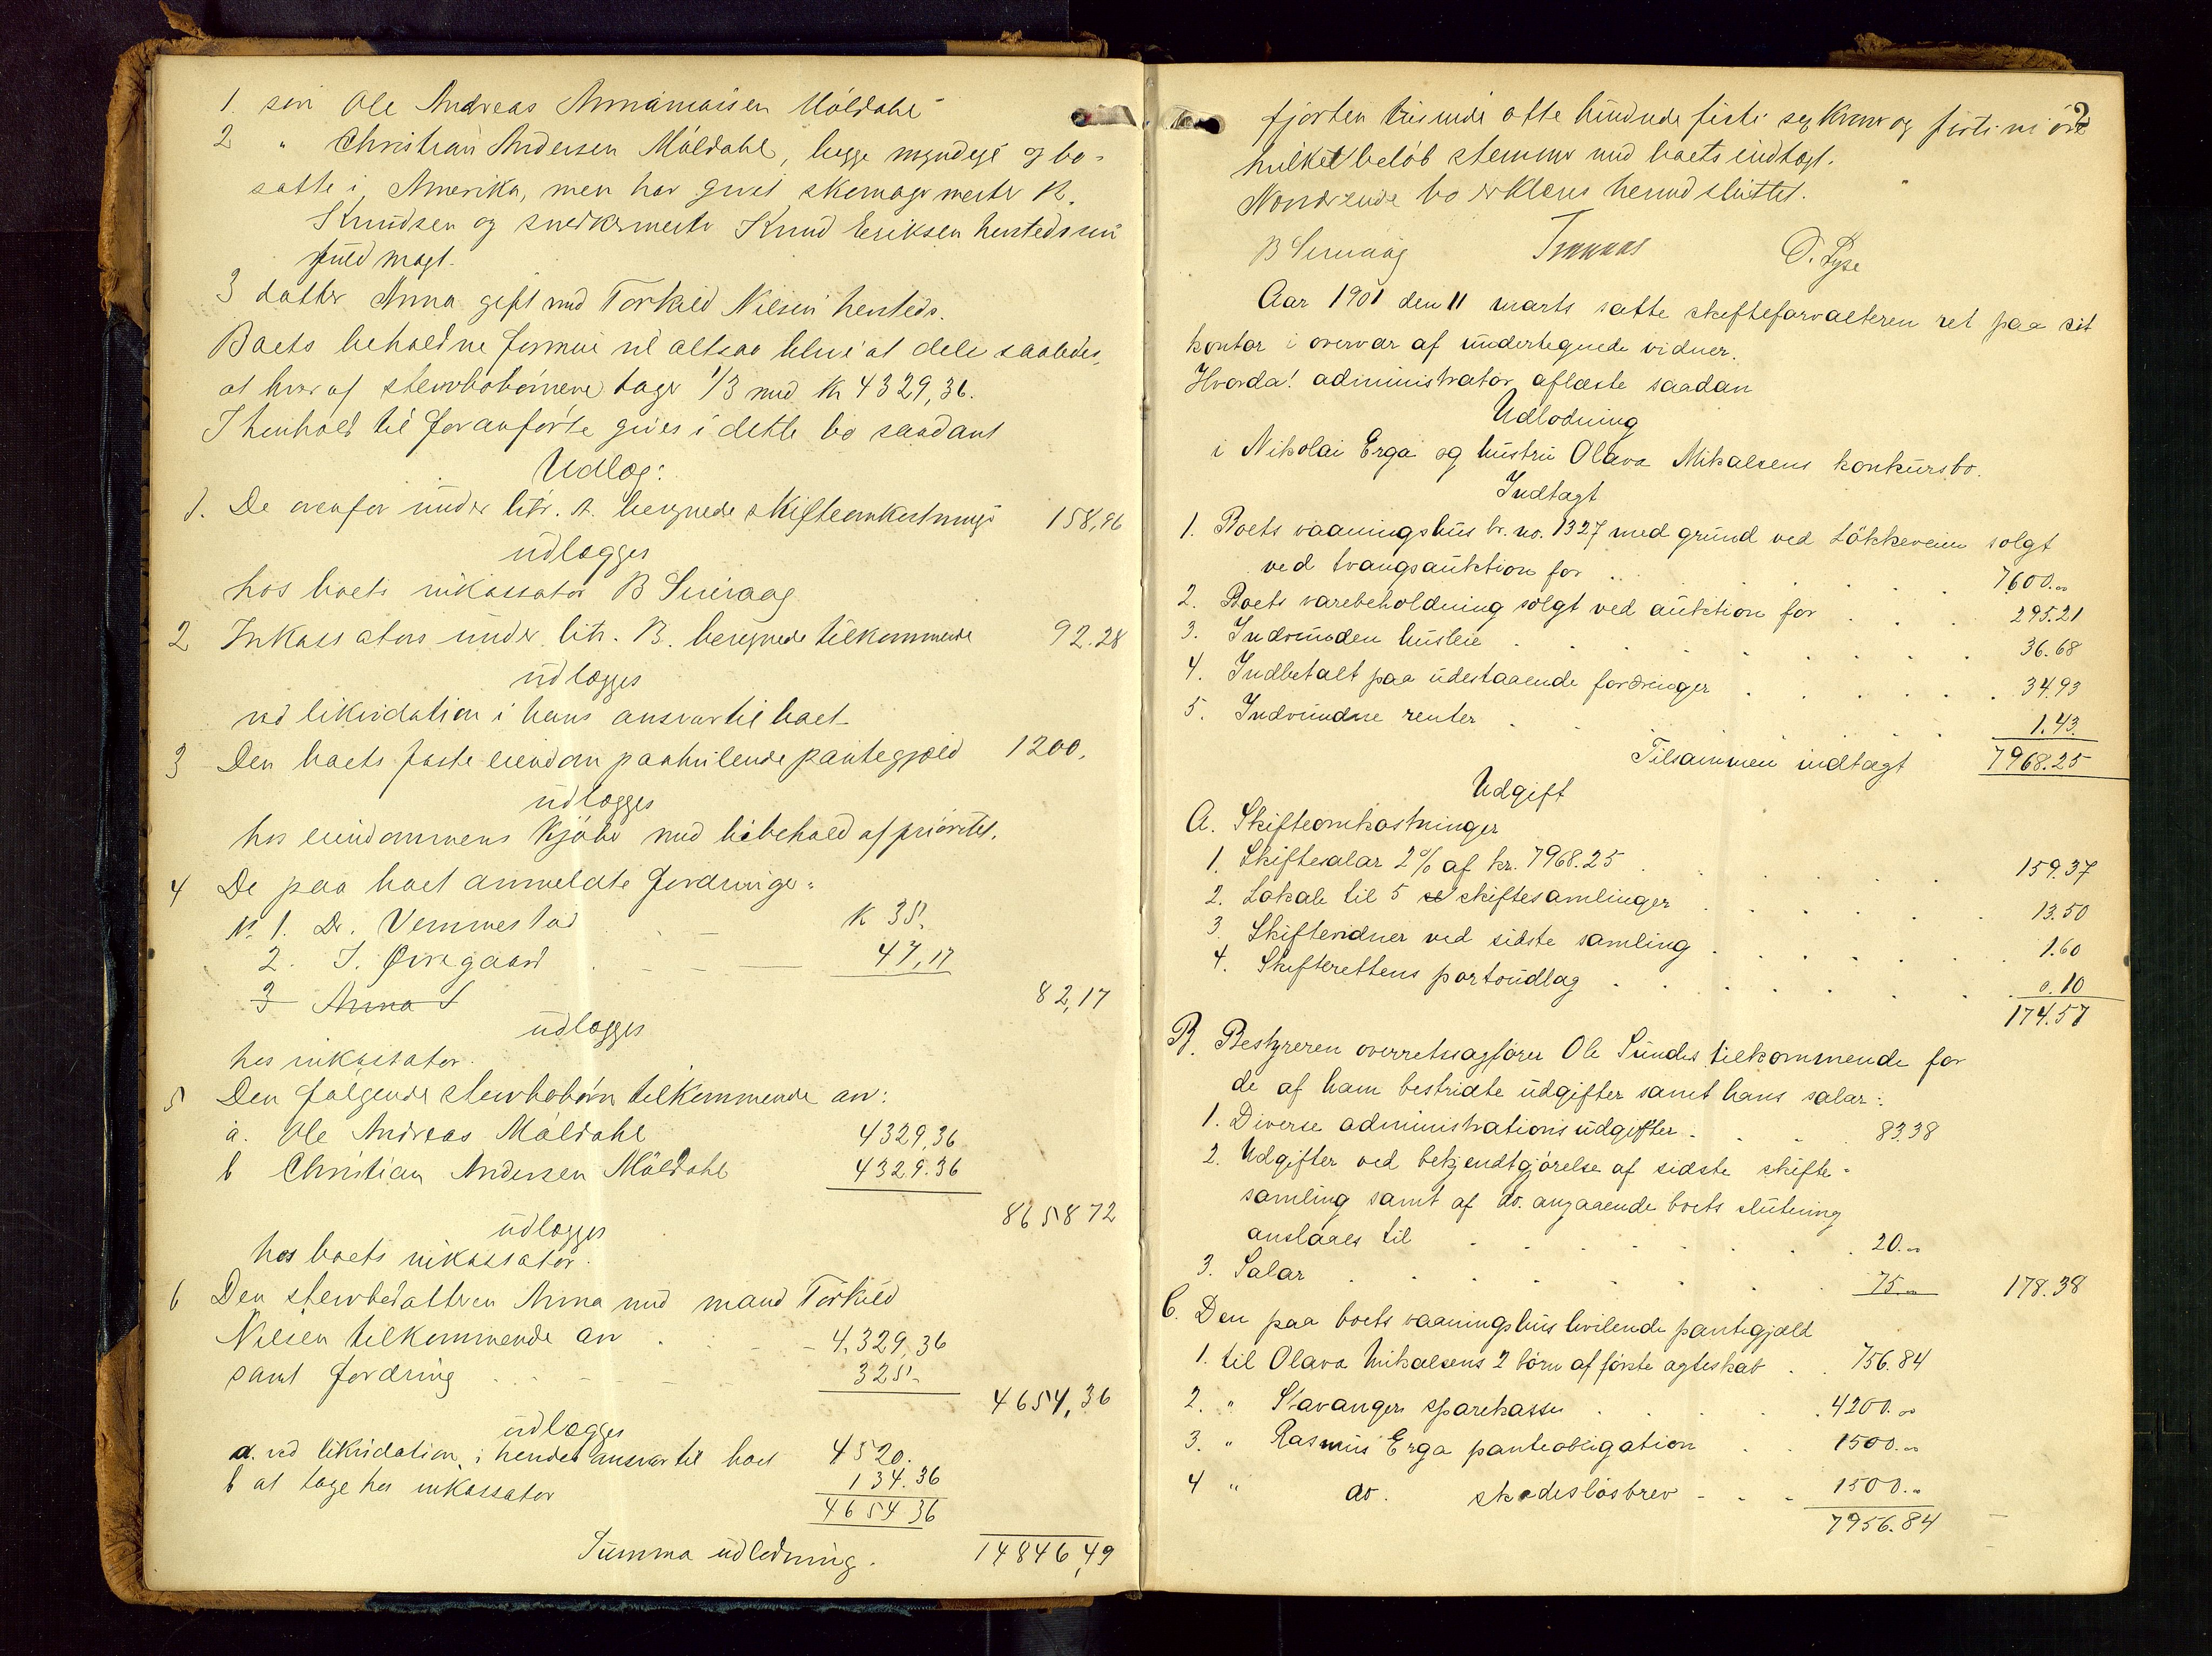 1. søn Ole Andreas Annamaisen Møldahl
2 " Christian Andersen Møldahl, begge myndige og bo-
satte i Amerika, men har givet skomagermester K.
Knudsen og snedkermester Knud Eriksen hersteds sin
fuldmagt.
3 datter Anna gift med Torkild Nilsen hersteds.
Boets beholdne formue vil altsaa blive at dele saaledes,
at hver af stervbobørnene tager 1/3 med Kr 4329,36.
I henhold til foranførte gives i dette bo saadant
Udlæg:
1. De ovenfor under litr. A. beregnede skifteomkostninger 158,96
udlægges
hos boets inkassator B Sunraag
2 Inkassators under litr. B. beregnede tilkommende 92.28
udlægges
ved likvidation i hans ansvar til boet
3 Den boets faste eiendom paahvilende pantegjæld 1200,
udlægges
hos eiendommens kjøber med bibehold af prioritet.
4 De paa boet anmeldte fordringer:
No 1. Dr. Vemmestad K 35.
2. J. Øvregaard 47,17
3 Anna S 82,17
udlægges
hos inkassator.
5 Den følgende stervbobørn tilkommende arv:
a. Ole Andreas Møldahl 4329,36
b Christian Andersen Møldahl 4329.36
8658 72
udlægges
hos boets inkassator.
6 Den stervbodatteren Anna med mand Torkild
Nilsen tilkommende arv 4.329,36
samt fordring 325.-
4654,36
udlægges
a. ved likvidation i hendes ansvar til boet 4520.
b at tage hos inkassator 134.36
4654 36
Summa udlodning. 14846,49
2
fjorten tusinde otte hundrede firti sex kroner og firti ni øre
hvilket beløb stemmer med boets indtægt.
Nærværende bo erklæres hermed sluttet.
B Sunraag O. Tyse
Aar 1901 den 11 marts satte skifteforvalteren ret paa sit
kontor i overvær af undertegnede vidner.
Hvorda! administrator aflæste saadan
Udlodning
i Nikolai Erga og hustru Olava Mikalsens konkursbo.
Indtægt
1. Boets vaaningshus br. no. 1327 med grund ved Løkkeveien solgt
ved tvangsauktion for 7600.00
2. Boets varebeholdning solgt ved auktion for 295.21
3. Indvunden husleie 36.68
4. Indbetalt paa udestaaende fordringer 34.93
5. Indvundne renter 1.43
Tilsammen indtægt 7968.25
Udgift
A. Skifteomkostninger
1. Skiftesalar 2% af kr. 7968.25 159.37
2. Lokale til 5 skiftesamlinger 13.50
3. Skiftevidner ved sidste samling 1.60
4. Skifterettens portoudlæg 0.10
174.57
B. Bestyreren overretssagfører Ole Sundes tilkommende for
de af ham bestridte udgifter samt hans salar:
1. Diverse administrationsudgifter 83.38
2. Udgifter ved bekjendtgjørelse af sidste skifte-
samling samt af do. angaaende boets slutning
anslaaes til 20.00
3. Salar 75.00 178.38
C. Den paa boets vaaningshus hvilende pantegjæld
1. til Olava Mikalsens 2 børn af første ægteskab 756.84
2. " Stavanger sparekasse 4200.00
3. " Rasmus Erga panteobligation 1500.00
4 " do. skadesløsbrev 1500.00
7956.84